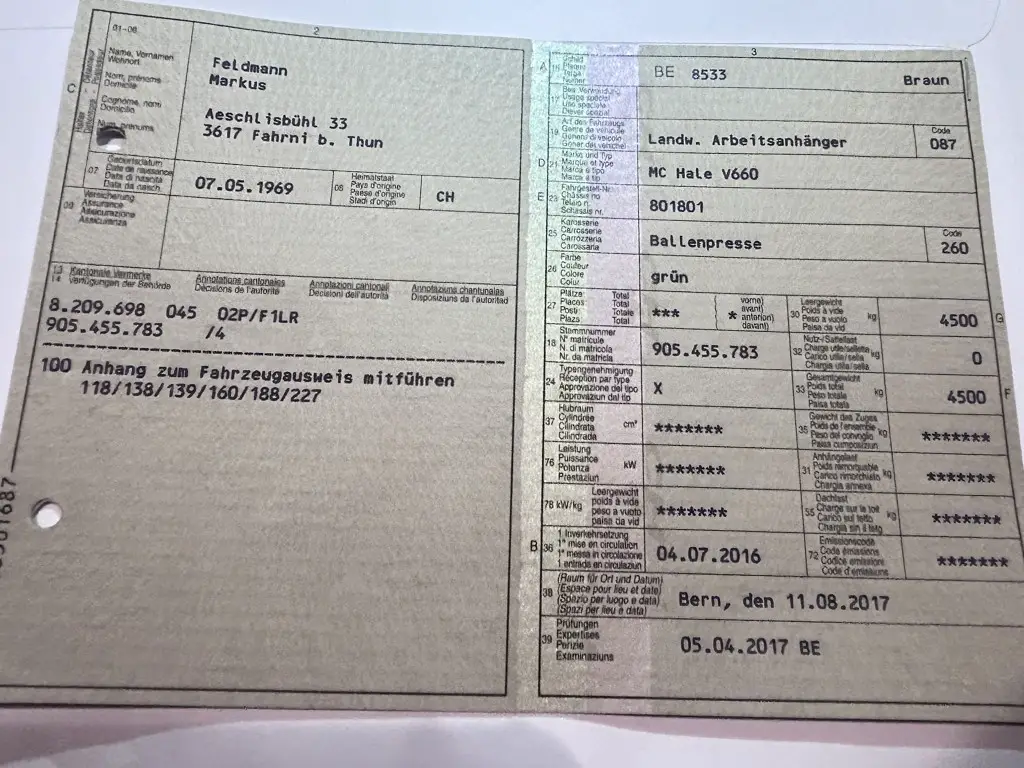 01-06
2
C
Name, Vornamen
Wohnort
Nom, prénoms
Domicile
Cognome, nomi
Domicilio
Num, prenums
Feldmann
Markus
Aeschlisbühl 33
3617 Fahrni b. Thun
07
Geburtsdatum
Date de naissance
Data di nascita
Data da nasch.
07.05.1969
08
Heimatstaat
Pays d'origine
Paese d'origine
Stadi d'origin
CH
09
Versicherung
Assurance
Assicurazione
Assicuranza
13
14
Kantonale Vermerke
Verfügungen der Behörde
Annotations cantonales
Décisions de l'autorité
Annotazioni cantonali
Decisioni dell'autorità
Annotaziuns chantunalas
Disposiziuns da l'autoritad
8.209.698 045 02P/F1LR
905.455.783 /4
100 Anhang zum Fahrzeugausweis mitführen
118/138/139/160/188/227
3
A 15
Schild
Plaque
Targa
Numer
BE 8533 Braun
17
Bes. Verwendung
Usage spécial
Uso speciale
Diever spezial
19
Art des Fahrzeugs
Genre de véhicule
Genere di veicolo
Gener dal vehichel
Landw. Arbeitsanhänger
Code
087
D 21
Marke und Typ
Marque et type
Marca e tipo
Marca e tip
MC Hale V660
E 23
Fahrgestell-Nr.
Châssis no
Telaio n.
Schassis nr.
801801
25
Karosserie
Carrosserie
Carrozzeria
Carossaria
Ballenpresse
Code
260
26
Farbe
Couleur
Colore
Colur
grün
27
Plätze Total
Places Total
Posti Totale
Plazs Total
***
*
vorne)
avant)
anteriori)
davant)
30
Leergewicht
Poids à vide
Peso a vuoto
Paisa da vid
kg
4500
G
18
Stammnummer
N° matricule
N. di matricola
Nr. da matricla
905.455.783
32
Nutz-/Sattellast
Charge utile/sellette
Carico utile/sella
Chargia utila/sella
kg
0
24
Typengenehmigung
Réception par type
Approvazione del tipo
Approvaziun dal tip
X
33
Gesamtgewicht
Poids total
Peso totale
Paisa totala
kg
4500
F
37
Hubraum
Cylindrée
Cilindrata
Cilindrada
cm³
*******
35
Gewicht des Zuges
Poids de l'ensemble
Peso del convoglio
Paisa cumposiziun
kg
*******
76
Leistung
Puissance
Potenza
Prestaziun
kW
*******
31
Anhängelast
Poids remorquable
Carico rimorchiato
Chargia annexa
kg
*******
78 kW/kg
Leergewicht
poids à vide
peso a vuoto
paisa da vid
*******
55
Dachlast
Charge sur le toit
Carico sul tetto
Chargia sin il tetg
kg
*******
B 36
1. Inverkehrsetzung
1re mise en circulation
1a messa in circolazione
1. entrada en circulaziun
04.07.2016
72
Emissionscode
Code émissions
Codice emissioni
Code d'emissiuns
*******
38
(Raum für Ort und Datum)
(Espace pour lieu et date)
(Spazio per luogo e data)
(Spazi per lieu e data)
Bern, den 11.08.2017
39
Prüfungen
Expertises
Perizie
Examinaziuns
05.04.2017 BE